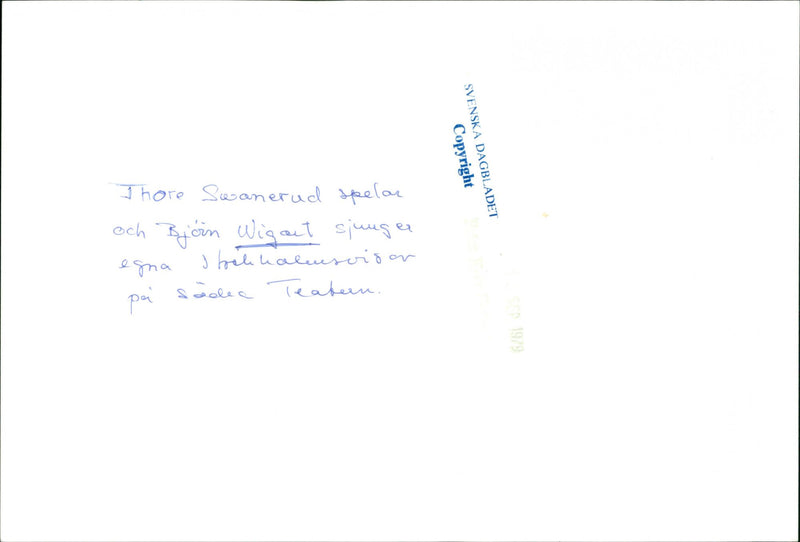 Thore Swanerud spelar
och Björn Wigart sjunger
egna Stockholmsvisor
på Södra Teatern.
SVENSKA DAGBLADET
Copyright
1979